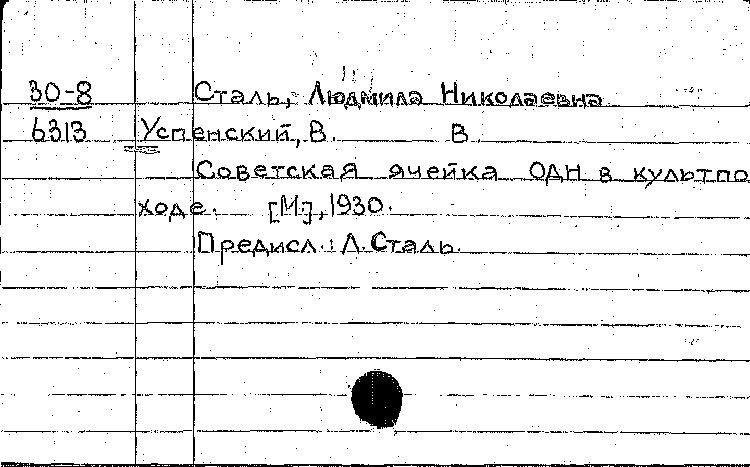 30-8 Сталь, Людмила Николаевна
6313 Успенский, В. В.
Советская ячейка ОДН в культпо
ходе. [М.], 1930.
Предисл.: Л. Сталь.